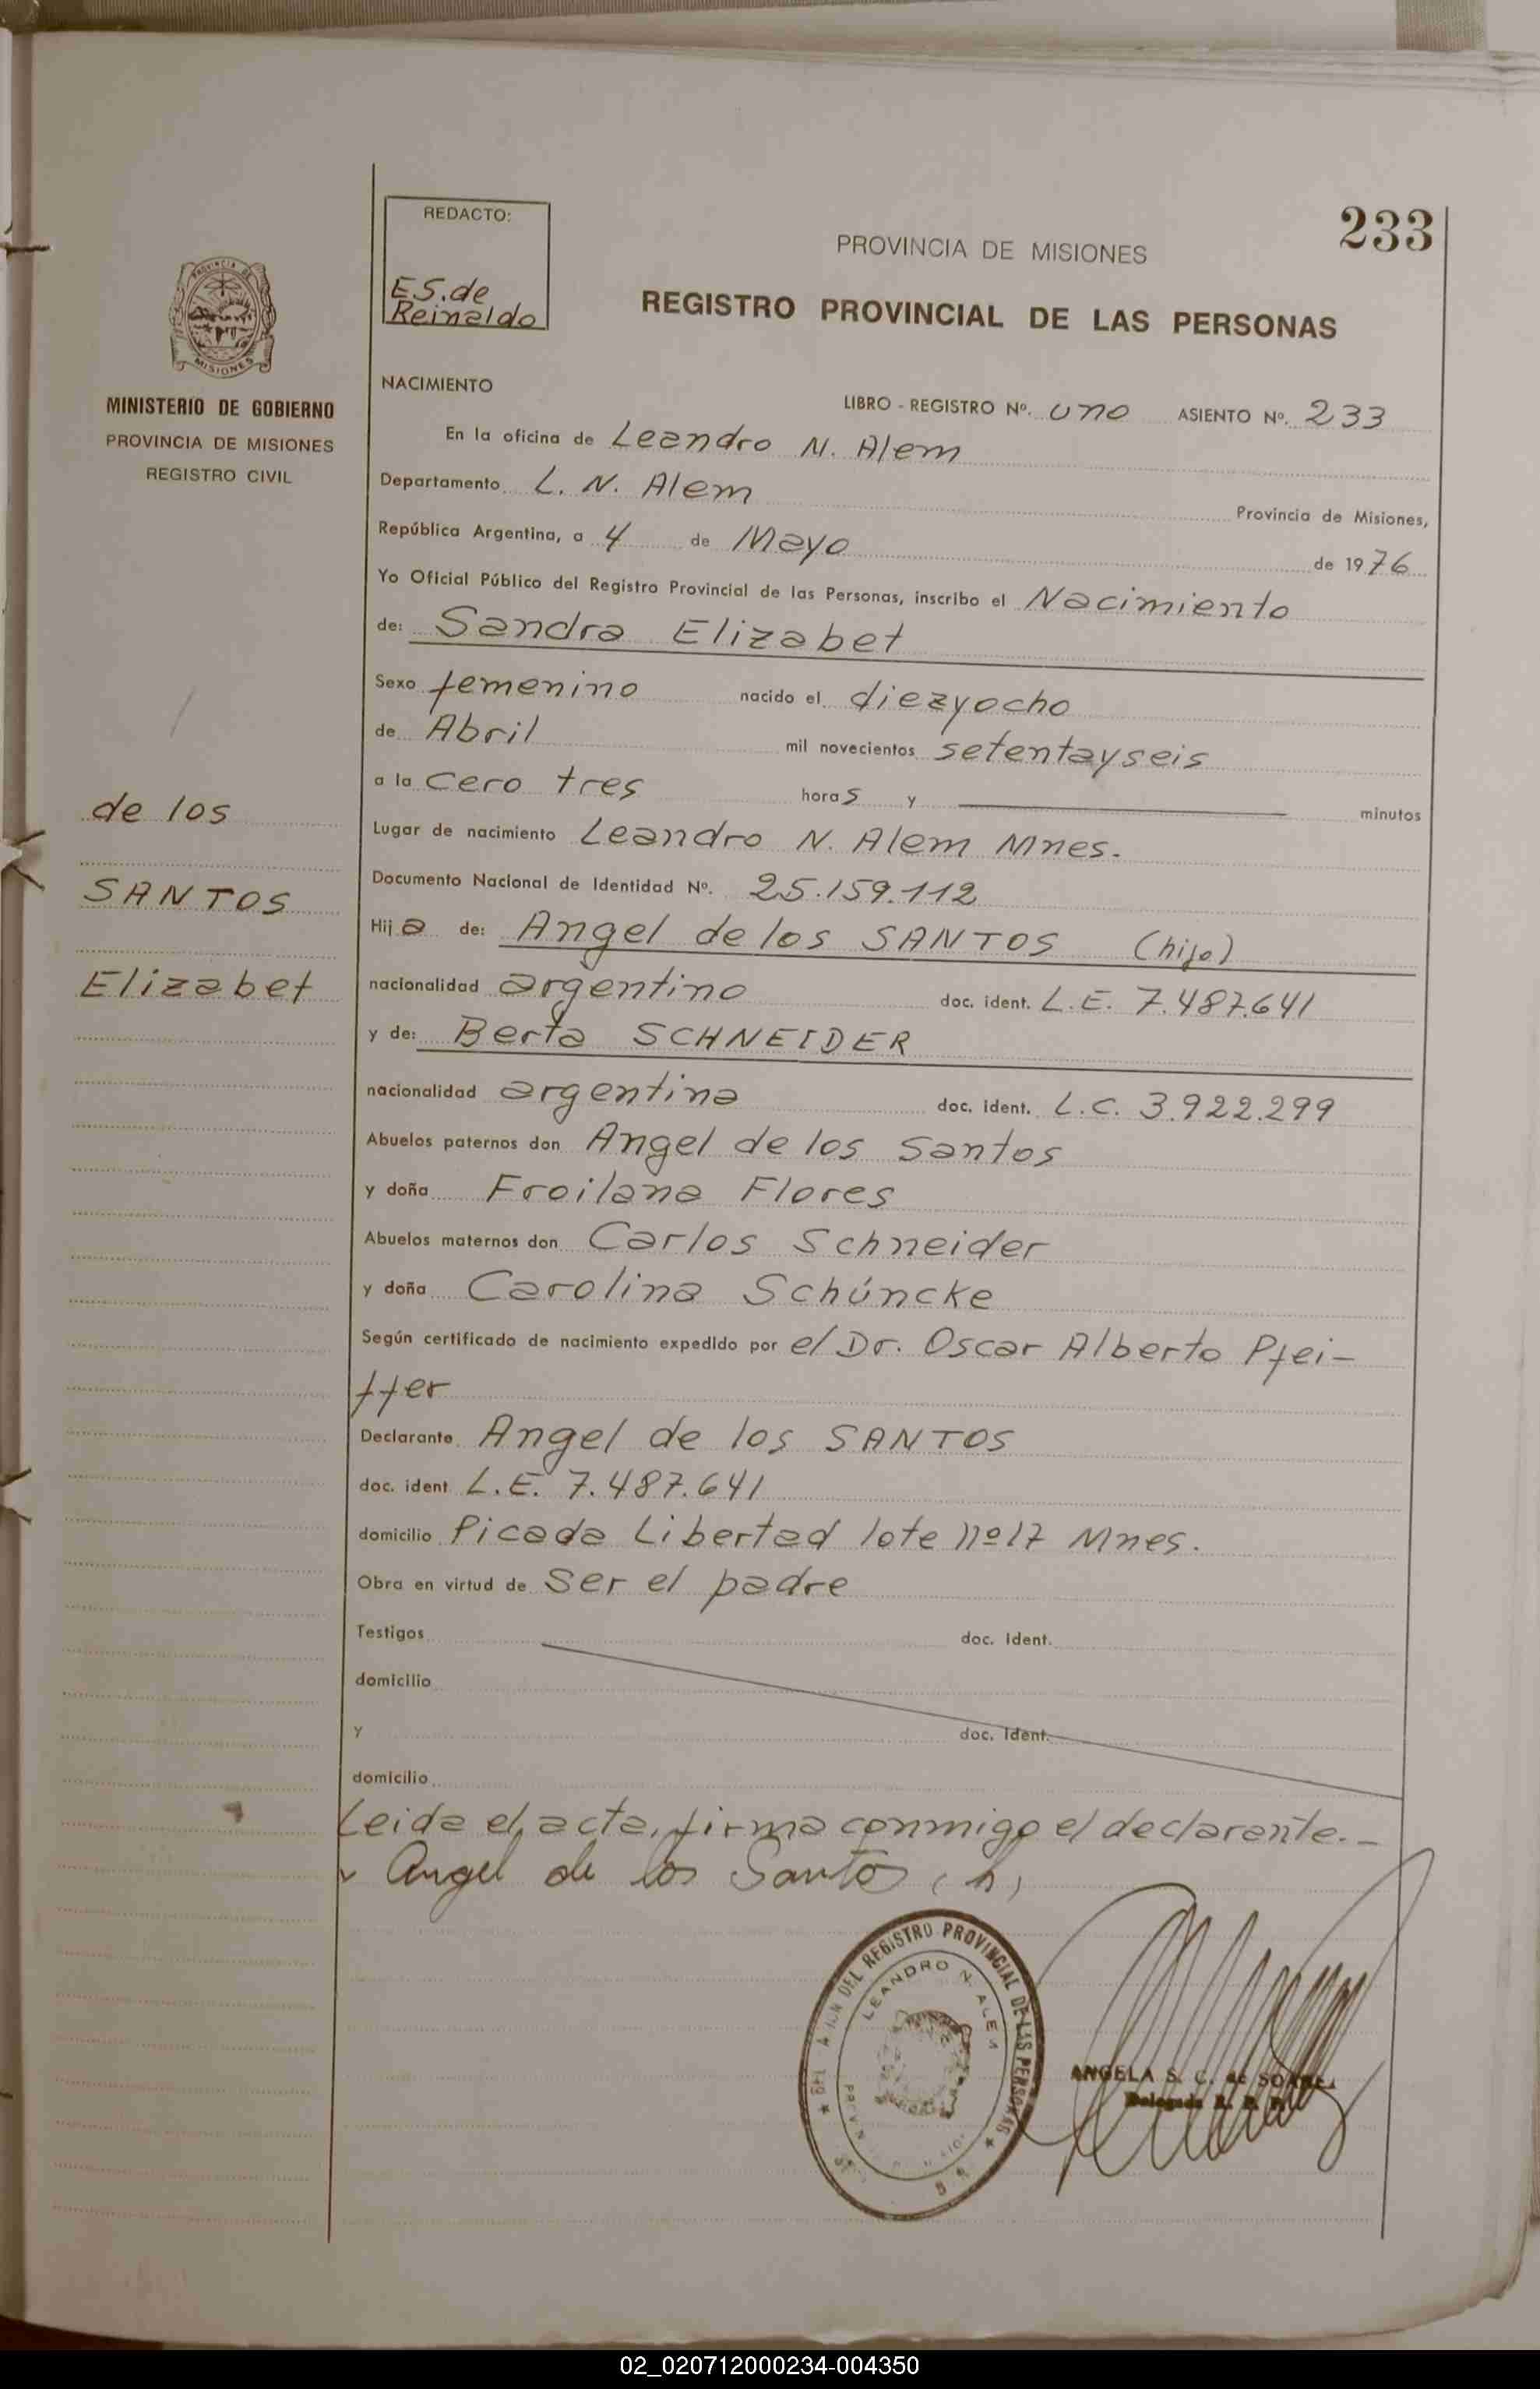 233
REDACTO:
E.S. de
Reinaldo
PROVINCIA DE MISIONES
REGISTRO PROVINCIAL DE LAS PERSONAS
MISIONES
MINISTERIO DE GOBIERNO
PROVINCIA DE MISIONES
REGISTRO CIVIL
de los
SANTOS
Elizabet
NACIMIENTO
LIBRO - REGISTRO Nº. uno ASIENTO Nº. 233
En la oficina de Leandro N. Alem
Departamento L. N. Alem Provincia de Misiones,
República Argentina, a 4 de Mayo de 1976
Yo Oficial Público del Registro Provincial de las Personas, inscribo el Nacimiento
de: Sandra Elizabet
Sexo femenino nacido el diezyocho
de Abril mil novecientos setentayseis
a la cero tres horas y minutos
Lugar de nacimiento Leandro N. Alem Mnes.
Documento Nacional de Identidad Nº. 25.159.112
Hija de: Angel de los SANTOS (hijo)
nacionalidad argentino doc. ident. L.E. 7.487.641
y de: Berta SCHNEIDER
nacionalidad argentina doc. ident. L.C. 3.922.299
Abuelos paternos don Angel de los Santos
y doña Froilana Flores
Abuelos maternos don Carlos Schneider
y doña Carolina Schúncke
Según certificado de nacimiento expedido por el Dr. Oscar Alberto Pfei-
ffer
Declarante Angel de los SANTOS
doc. ident L.E. 7.487.641
domicilio Picada Libertad lote nº 17 Mnes.
Obra en virtud de Ser el padre
Testigos doc. ident.
domicilio
y doc. ident.
domicilio
Leida el acta, firma conmigo el declarante.-
Angel de los Santos (h)
DEL REGISTRO PROVINCIAL DE LAS PERSONAS
LEANDRO N. ALEM
ANGELA S. C. de
Delegada R. P. P.
02_020712000234-004350